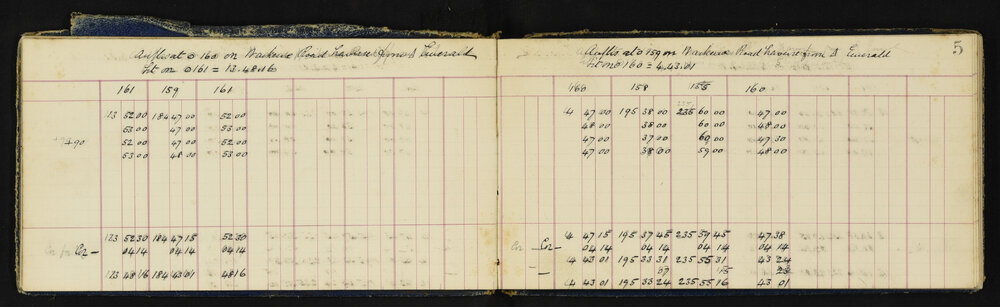 Angles at ⊙ 160 on Road traverse from Δ Emerald
Set on ⊙ 161 = 13.48.16
161 159 161
13 52 00 184 47 00 52 00
53 00 47 00 53 00
+90 52 00 47 00 52 00
53 00 48 00 53 00
123 52 30 184 47 15 52 30
Cor — 04 14 04 14 04 14
123 48 16 184 43 01 48 16
5
Angles at ⊙ 159 on Road traverse from Δ Emerald
Set on ⊙ 160 = 4.43.01
160 158 155 160
4 47 00 195 38 00 235 60 00 47 00
48 00 38 00 60 00 48 00
47 00 37 00 60 00 47 30
47 00 38 00 59 00 48 00
4 47 15 195 37 45 235 59 45 47 38
Cor — 04 14 04 14 04 14 04 14
4 43 01 195 33 31 235 55 31 43 24
— 07 15 23
4 43 01 195 33 24 235 55 16 43 01